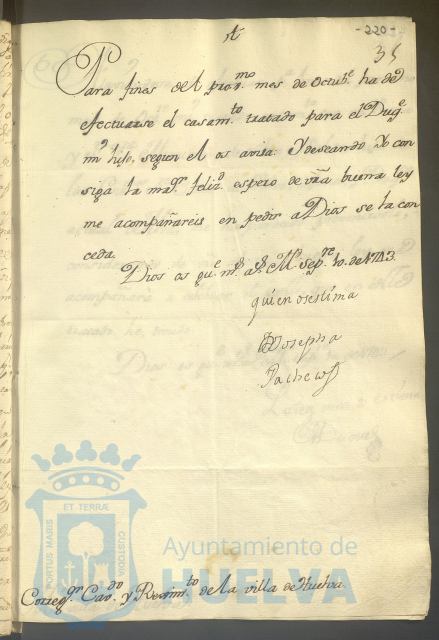 -220-
35
Para fines del prox.mo mes de Octub.e ha de
efectuarse el casam.to tratado para el Duq.e
mi hijo, segun el os avisa: Y deseando yo con
siga la ma.or feliz.d espero de vra buena ley
me acompañareis en pedir a Dios se la con
ceda.
Dios os gu.e m.s a.s M.d Sep.re 10. de 1743.
quien os estima
Josepha
Pacheco
PORTUS MARIS ET TERRÆ CUSTODIA
Ayuntamiento de
HUELVA
Correg.or Cav.do y Regim.to de la villa de Huelva.